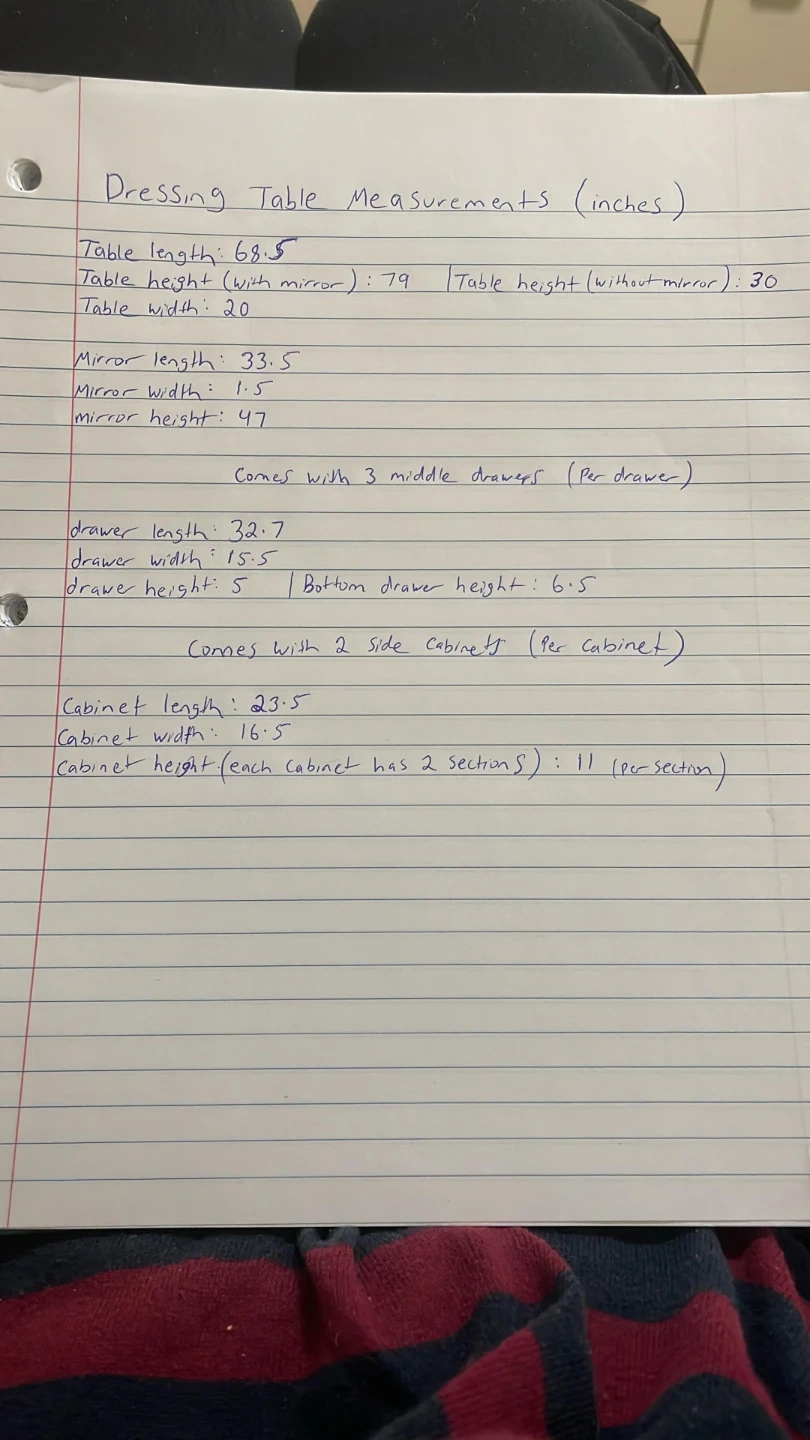 Dressing Table Measurements (inches)
Table length: 68.5
Table height (with mirror): 79 | Table height (without mirror): 30
Table width: 20
Mirror length: 33.5
Mirror width: 1.5
mirror height: 47
Comes with 3 middle drawers (Per drawer)
drawer length: 32.7
drawer width: 15.5
drawer height: 5 | Bottom drawer height: 6.5
Comes with 2 side cabinets (Per cabinet)
Cabinet length: 23.5
Cabinet width: 16.5
Cabinet height (each cabinet has 2 sections): 11 (per section)